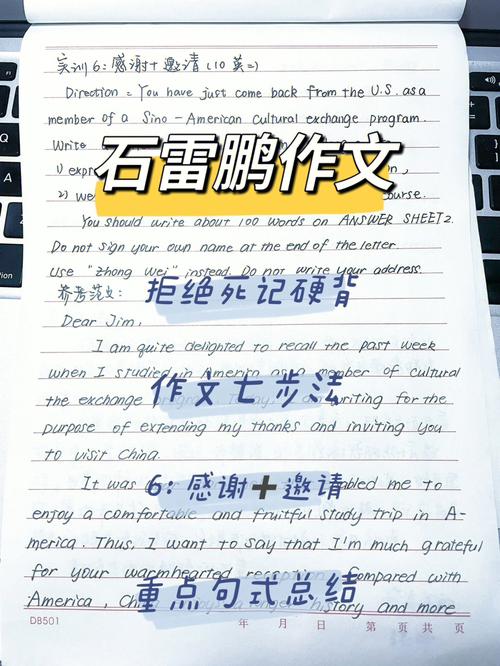 实训6:感谢+邀请(10英二)
Direction: You have just come back from the U.S. as a
member of a Sino-American cultural exchange program.
Write
1) expr
2) we course.
You should write about 100 words on ANSWER SHEET 2.
Do not sign your own name at the end of the letter.
Use "Zhong Wei" instead. Do not write your address.
参考范文:
Dear Jim,
I am quite delighted to recall the past week
when I studied in America as a member of cultural
the exchange writing for the
purpose of extending my thanks and inviting you
to visit China.
It was abled me to
enjoy a comfortable and fruitful study trip in A-
merica. Thus, I want to say that I'm much grateful
for your warmhearted Compared with
America, history and more
DB501 年 月 日 第 页 共 页
石雷鹏作文
拒绝死记硬背
作文七步法
6:感谢➕邀请
重点句式总结